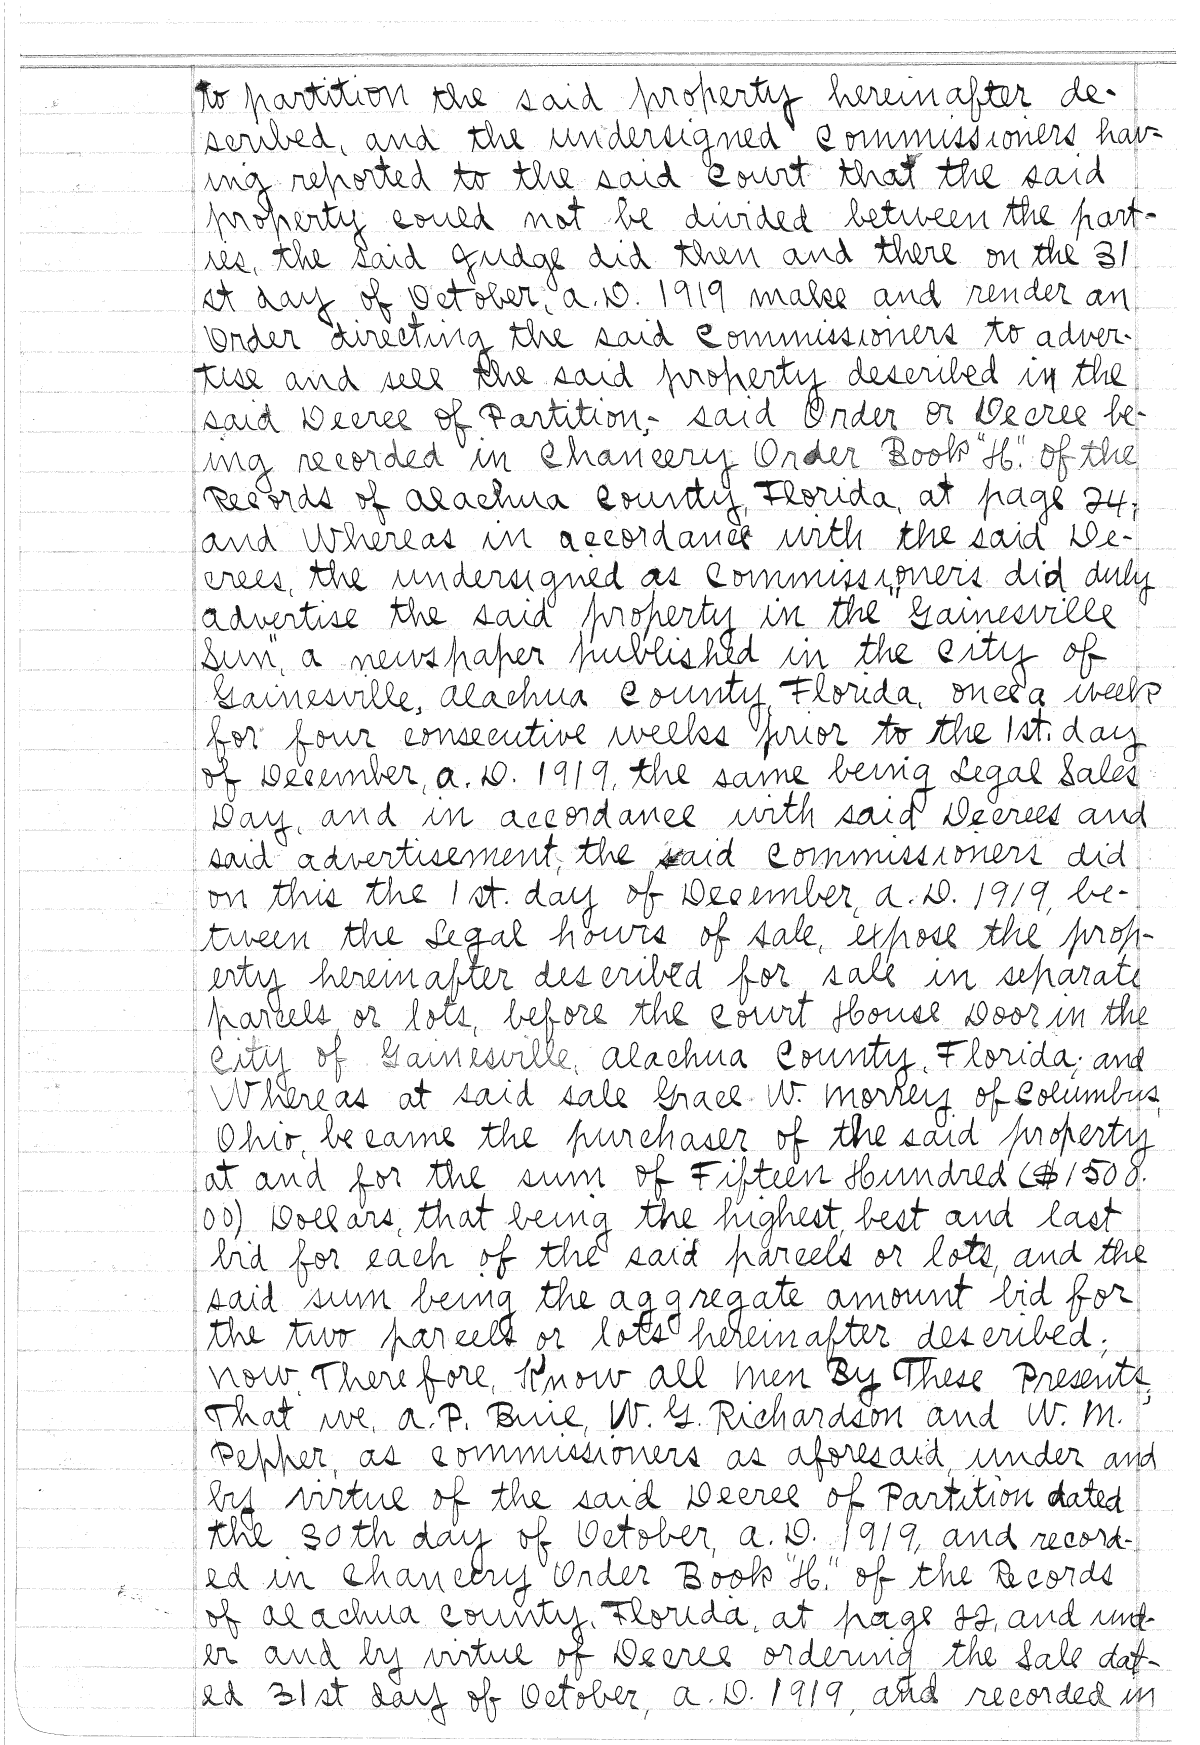 to partition the said property hereinafter de-
scribed, and the undersigned Commissioners hav-
ing reported to the said Court that the said
property could not be divided between the part-
ies, the said Judge did then and there on the 31
st day of October, A.D. 1919 make and render an
Order directing the said Commissioners to adver-
tise and sell the said property described in the
said Decree of Partition,- said Order or Decree be-
ing recorded in Chancery Order Book "H." of the
Records of Alachua County, Florida, at page 24;
and Whereas in accordance with the said De-
crees, the undersigned as Commissioners did duly
advertise the said property in the "Gainesville
Sun", a newspaper published in the City of
Gainesville, Alachua County, Florida, once a week
for four consecutive weeks prior to the 1st. day
of December, A.D. 1919, the same being Legal Sales
Day, and in accordance with said Decrees and
said advertisement, the said Commissioners did
on this the 1st. day of December, A.D. 1919, be-
tween the Legal hours of sale, expose the prop-
erty hereinafter described for sale in separate
parcels or lots, before the Court House Door in the
City of Gainesville, Alachua County, Florida; and
Whereas at said sale Grace W. Morrey of Columbus,
Ohio, became the purchaser of the said property
at and for the sum of Fifteen Hundred ($1500.
00) Dollars, that being the highest, best and last
bid for each of the said parcels or lots, and the
said sum being the aggregate amount bid for
the two parcels or lots hereinafter described;
Now, Therefore, Know All Men By These Presents,
That we, A.P. Buie, W.G. Richardson and W.M.
Pepper, as Commissioners as aforesaid, under and
by virtue of the said Decree of Partition dated
the 30th day of October, A.D. 1919, and record-
ed in Chancery Order Book "H." of the Records
of Alachua County, Florida, at page 22, and und-
er and by virtue of Decree ordering the Sale dat-
ed 31st day of October, A.D. 1919, and recorded in